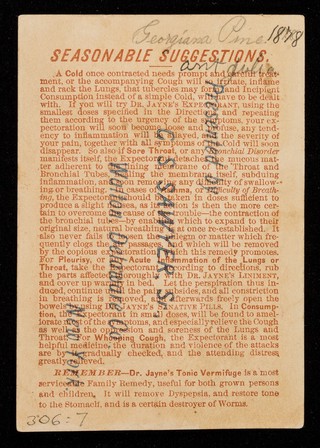 Georgiana
SEASONABLE SUGGESTIONS.
A Cold once contracted needs prompt and careful treat-
ment, or the accompanying Cough will so irritate, inflame
and rack the Lungs, that tubercles may form, and Incipient
Consumption instead of a simple Cold, will have to be dealt
with. If you will try DR. JAYNE'S EXPECTORANT, using the
smallest doses specified in the Directions, and repeating
them according to the urgency of the symptoms, your ex-
pectoration will soon become loose and profuse, any tend-
ency to inflammation will be allayed, and the severity of
your pain, together with all symptoms of a Cold will soon
disappear. So also if Sore Throat, or any Bronchial Disorder
manifests itself, the Expectorant detaches the mucous mat-
ter adherent to the lining membrane of the Throat and
Bronchial Tubes, healing the membrane itself, subduing
inflammation. Upon removing any difficulty of swallow-
ing or breathing. In case of Asthma, or Difficulty of Breath-
ing, the Expectorant should be taken in doses sufficient to
produce a slight nausea, as it then is the more cer-
tain to overcome the cause of the trouble—the contraction of
the bronchial tubes, by enabling which to expand to their
original size, natural breathing is at once re-established. It
also never fails to loosen the phlegm or matter which fre-
quently clogs these passages, and which will be removed
by the copious expectoration which this remedy promotes.
For Pleurisy, or the Acute Inflammation of the Lungs or
Throat, take the Expectorant according to directions, rub
the parts affected thoroughly with DR. JAYNE'S LINIMENT,
and cover up warmly in bed. Let the perspiration thus in-
duced, continue until the pain subsides, and all constriction
in breathing is removed, and afterwards freely open the
bowels using DR. JAYNE'S SANATIVE PILLS. In Consump-
tion, the Expectorant in small doses, will be found to amel-
iorate most of the symptoms, and especially relieve the Cough
as well as the oppression and soreness of the Lungs and
Throat. For Whooping Cough, the Expectorant is a most
helpful medicine, the duration and violence of the attacks
are by it gradually checked, and the attending distress
greatly relieved.
REMEMBER—Dr. Jayne's Tonic Vermifuge is a most
serviceable Family Remedy, useful for both grown persons
and children. It will remove Dyspepsia, and restore tone
to the Stomach, and is a certain destroyer of Worms.
Presented by
C. S. SAWYER
New York
306:7